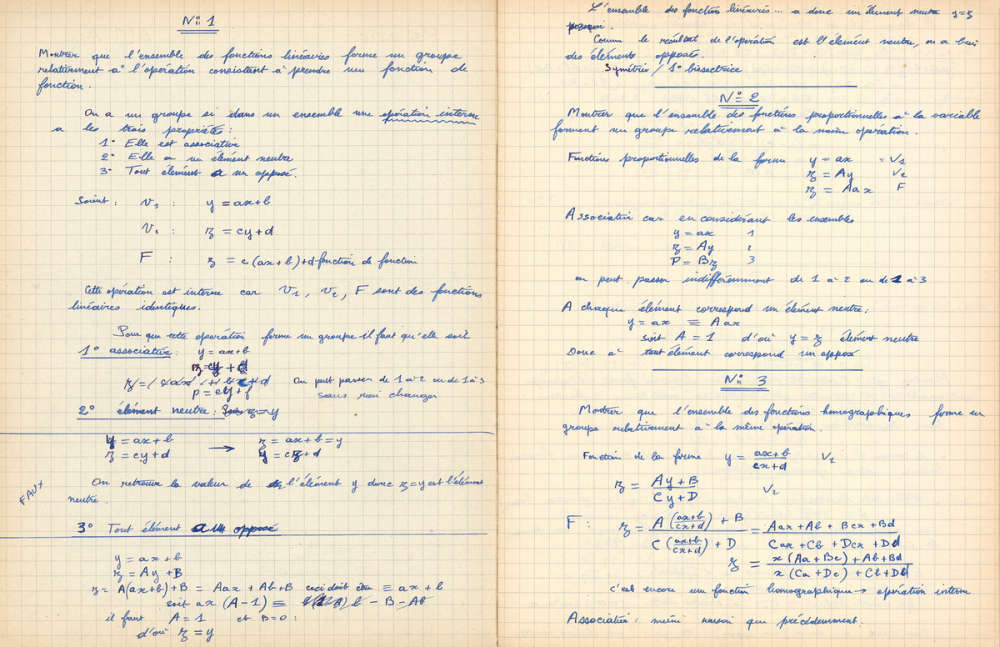 N° 1
Montrer que l'ensemble des fonctions linéaires forme un groupe
relativement à l'opération consistant à prendre une fonction de
fonction.
On a un groupe si dans un ensemble une opération interne
a les trois propriétés :
1° Elle est associative
2° Elle a un élément neutre
3° Tout élément a un opposé.
Soient : V₁ : y = ax+b
V₂ : z = cy+d
F : z = c(ax+b)+d fonction de fonction
Cette opération est interne car V₁, V₂, F sont des fonctions
linéaires identiques.
Pour que cette opération forme un groupe il faut qu'elle soit
1° associative : y = ax+b
z = cy + d
On peut passer de 1 à 2 ou de 1 à 3
p = ey+f sans rien changer
2° élément neutre : z = y
y = ax+b → z = ax+b = y
z = cy+d y = cz+d
FAUX
On retrouve la valeur de l'élément y donc z = y est l'élément
neutre.
3° Tout élément a un opposé
y = ax+b
z = Ay+B
z = A(ax+b)+B = Aax + Ab+B ceci doit être ≡ ax+b
soit ax (A-1) ≡ b - B - Ab
il faut A = 1 et B = 0 :
d'où z = y
L'ensemble des fonctions linéaires ... a donc un élément neutre y=z
Comme le résultat de l'opération est l'élément neutre, on a bien
des éléments opposés.
Symétrie / 1° bissectrice
N° 2
Montrer que l'ensemble des fonctions proportionnelles à la variable
forment un groupe relativement à la même opération.
Fonctions proportionnelles de la forme y = ax V₁
z = Ay V₂
z = Aax F
Associative car en considérant les ensembles
y = ax 1
z = Ay 2
P = Bz 3
on peut passer indifféremment de 1 à 2 ou de 1 à 3
A chaque élément correspond un élément neutre :
y = ax ≡ Aax
soit A = 1 d'où y = z élément neutre
Donc à tout élément correspond un opposé
N° 3
Montrer que l'ensemble des fonctions homographiques forme un
groupe relativement à la même opération.
Fonction de la forme y = (ax+b)/(cx+d) V₁
z = (Ay+B)/(Cy+D) V₂
F : z = (A((ax+b)/(cx+d)) + B)/(C((ax+b)/(cx+d)) + D) = (Aax + Ab + Bcx + Bd)/(Cax + Cb + Dcx + Dd)
z = (x(Aa+Bc) + Ab+Bd)/(x(Ca+Dc) + Cb+Dd)
c'est encore une fonction homographique → opération interne
Associative : même raison que précédemment.